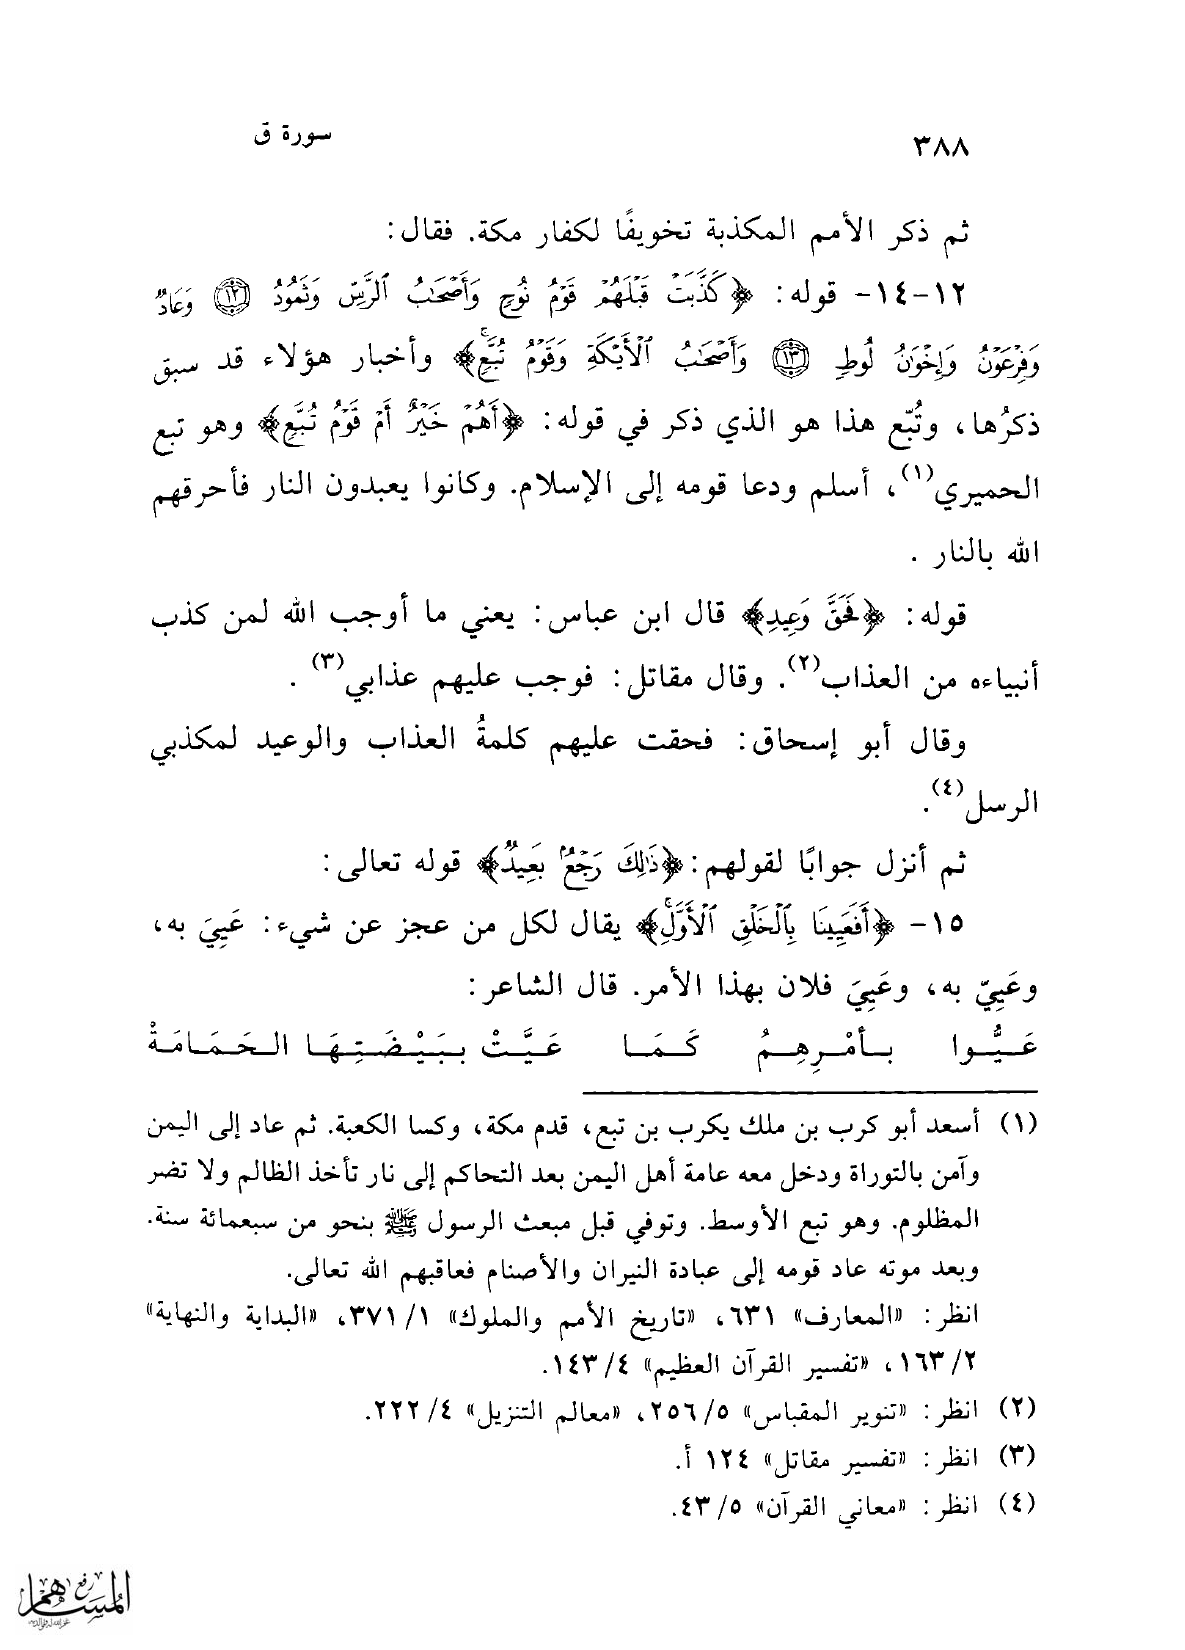 ٣٨٨
سورة ق
ثم ذكر الأمم المكذبة تخويفًا لكفار مكة. فقال:
١٢-١٤- قوله: ﴿كَذَّبَتْ قَبْلَهُمْ قَوْمُ نُوحٍ وَأَصْحَٰبُ ٱلرَّسِّ وَثَمُودُ ۝١٢ وَعَادٌ
وَفِرْعَوْنُ وَإِخْوَٰنُ لُوطٍ ۝١٣ وَأَصْحَٰبُ ٱلْأَيْكَةِ وَقَوْمُ تُبَّعٍ﴾ وأخبار هؤلاء قد سبق
ذكرُها، وتُبّع هذا هو الذي ذكر في قوله: ﴿أَهُمْ خَيْرٌ أَمْ قَوْمُ تُبَّعٍ﴾ وهو تبع
الحميري(١)، أسلم ودعا قومه إلى الإسلام. وكانوا يعبدون النار فأحرقهم
الله بالنار .
قوله: ﴿فَحَقَّ وَعِيدِ﴾ قال ابن عباس: يعني ما أوجب الله لمن كذب
أنبياءه من العذاب(٢). وقال مقاتل: فوجب عليهم عذابي(٣) .
وقال أبو إسحاق: فحقت عليهم كلمةُ العذاب والوعيد لمكذبي
الرسل(٤).
ثم أنزل جوابًا لقولهم: ﴿ذَٰلِكَ رَجْعٌۢ بَعِيدٌ﴾ قوله تعالى:
١٥- ﴿أَفَعَيِينَا بِٱلْخَلْقِ ٱلْأَوَّلِ﴾ يقال لكل من عجز عن شيء: عَيِيَ به،
وعَيِيّ به، وعَيِيَ فلان بهذا الأمر. قال الشاعر:
عَـيُّـوا بـأمْـرِهِـمُ كَـمَـا عَـيَّـتْ بـبَـيْـضَـتِـهَـا الـحَـمَـامَـةْ
(١) أسعد أبو كرب بن ملك يكرب بن تبع، قدم مكة، وكسا الكعبة. ثم عاد إلى اليمن
وآمن بالتوراة ودخل معه عامة أهل اليمن بعد التحاكم إلى نار تأخذ الظالم ولا تضر
المظلوم. وهو تبع الأوسط. وتوفي قبل مبعث الرسول ﷺ بنحو من سبعمائة سنة.
وبعد موته عاد قومه إلى عبادة النيران والأصنام فعاقبهم الله تعالى.
انظر: «المعارف» ٦٣١، «تاريخ الأمم والملوك» ١/ ٣٧١، «البداية والنهاية»
٢/ ١٦٣، «تفسير القرآن العظيم» ٤/ ١٤٣.
(٢) انظر: «تنوير المقباس» ٥/ ٢٥٦، «معالم التنزيل» ٤/ ٢٢٢.
(٣) انظر: «تفسير مقاتل» ١٢٤ أ.
(٤) انظر: «معاني القرآن» ٥/ ٤٣.